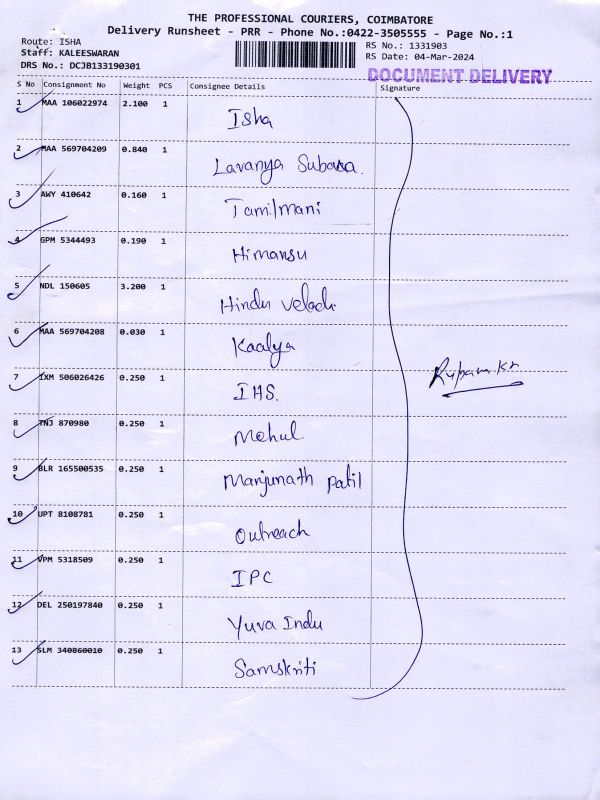 THE PROFESSIONAL COURIERS, COIMBATORE
Delivery Runsheet - PRR - Phone No.:0422-3505555 - Page No.:1
Route: ISHA
Staff: KALEESWARAN
DRS No.: DCJB133190301
RS No.: 1331903
RS Date: 04-Mar-2024
DOCUMENT DELIVERY
S No Consignment No Weight PCS Consignee Details Signature
1 MAA 106022974 2.100 1 Isha
2 MAA 569704209 0.840 1 Lavanya
3 AWY 410642 0.160 1 Tamilmani
4 GPM 5344493 0.190 1 Himansu
5 NDL 150605 3.200 1 Hindu
6 MAA 569704208 0.030 1 Kaalya
7 IXM 506026426 0.250 1 IHS.
8 TNJ 870980 0.250 1 Mehul
9 BLR 165500535 0.250 1 Manjunath Patil
10 UPT 8108781 0.250 1 Outreach
11 VPM 5318509 0.250 1 IPC
12 DEL 250197840 0.250 1 Yuva Indu
13 SLM 340860010 0.250 1 Samskriti